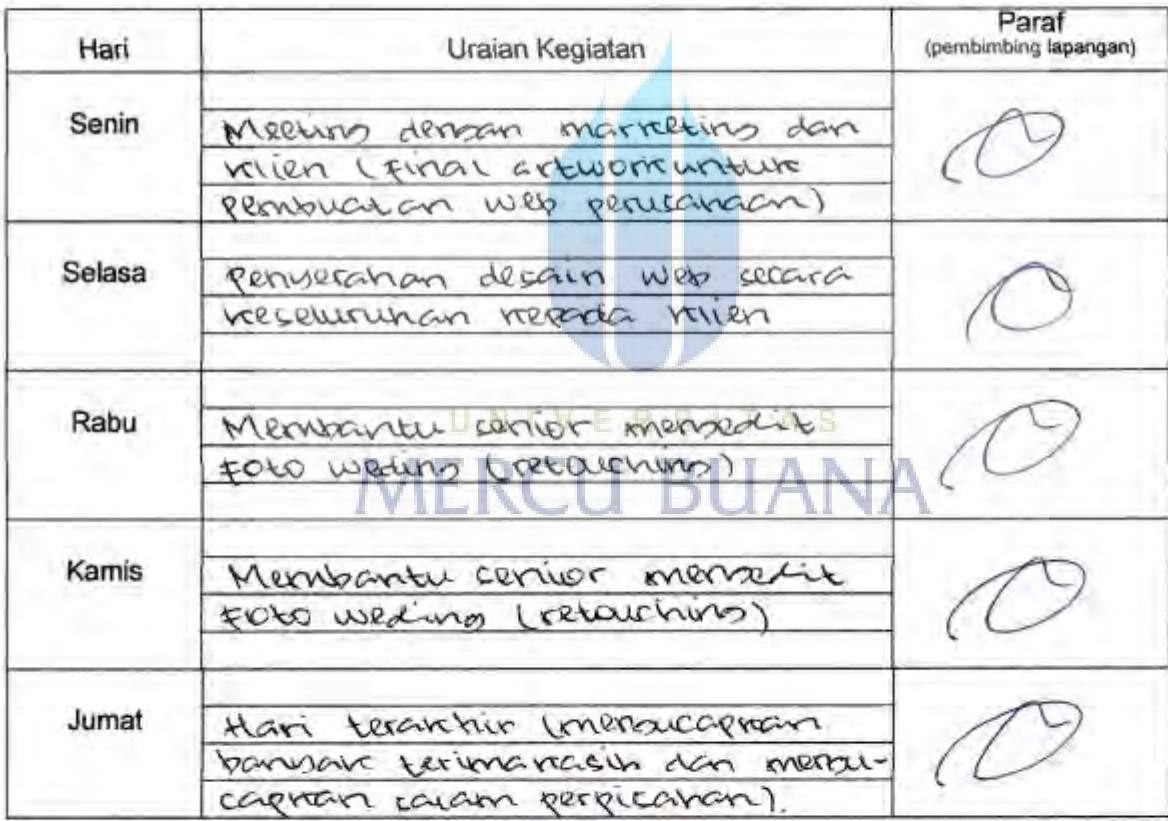 Hari Uraian Kegiatan Paraf
(pembimbing lapangan)
Senin
Meeting dengan marketing dan
klien (Final artwork untuk
pembuatan web perusahaan)
Selasa
Penyerahan desain web secara
keseluruhan kepada klien
Rabu
Membantu senior mengedit
Foto weding (retouching)
Kamis
Membantu senior mengedit
Foto weding (retouching)
Jumat
Hari terakhir (mengucapkan
banyak terimakasih dan mengu-
capkan salam perpisahan).
UNIVERSITAS
MERCU BUANA